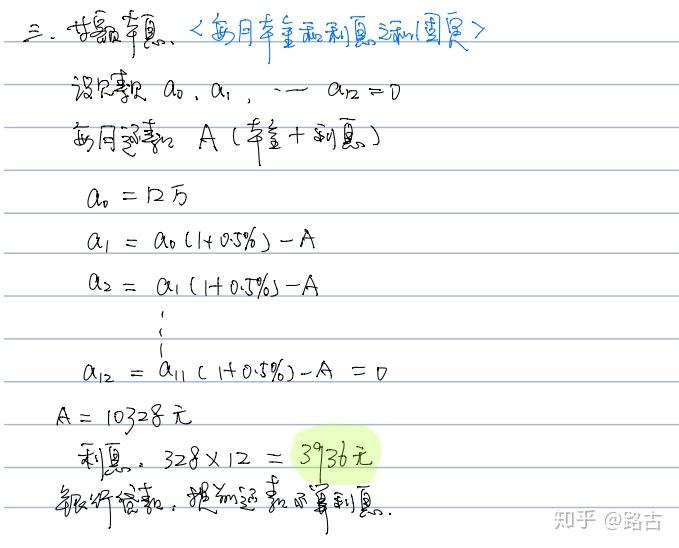 三.等额本息、<每月本金和利息之和固定>
设欠款 a₀、a₁、…… a₁₂=0
每月还款 A(本金+利息)
a₀=12万
a₁=a₀(1+0.5%)-A
a₂=a₁(1+0.5%)-A
⋮
a₁₂=a₁₁(1+0.5%)-A=0
A=10328元
利息.328×12=3936元
银行贷款,提前还款不算利息.
知乎 @路古